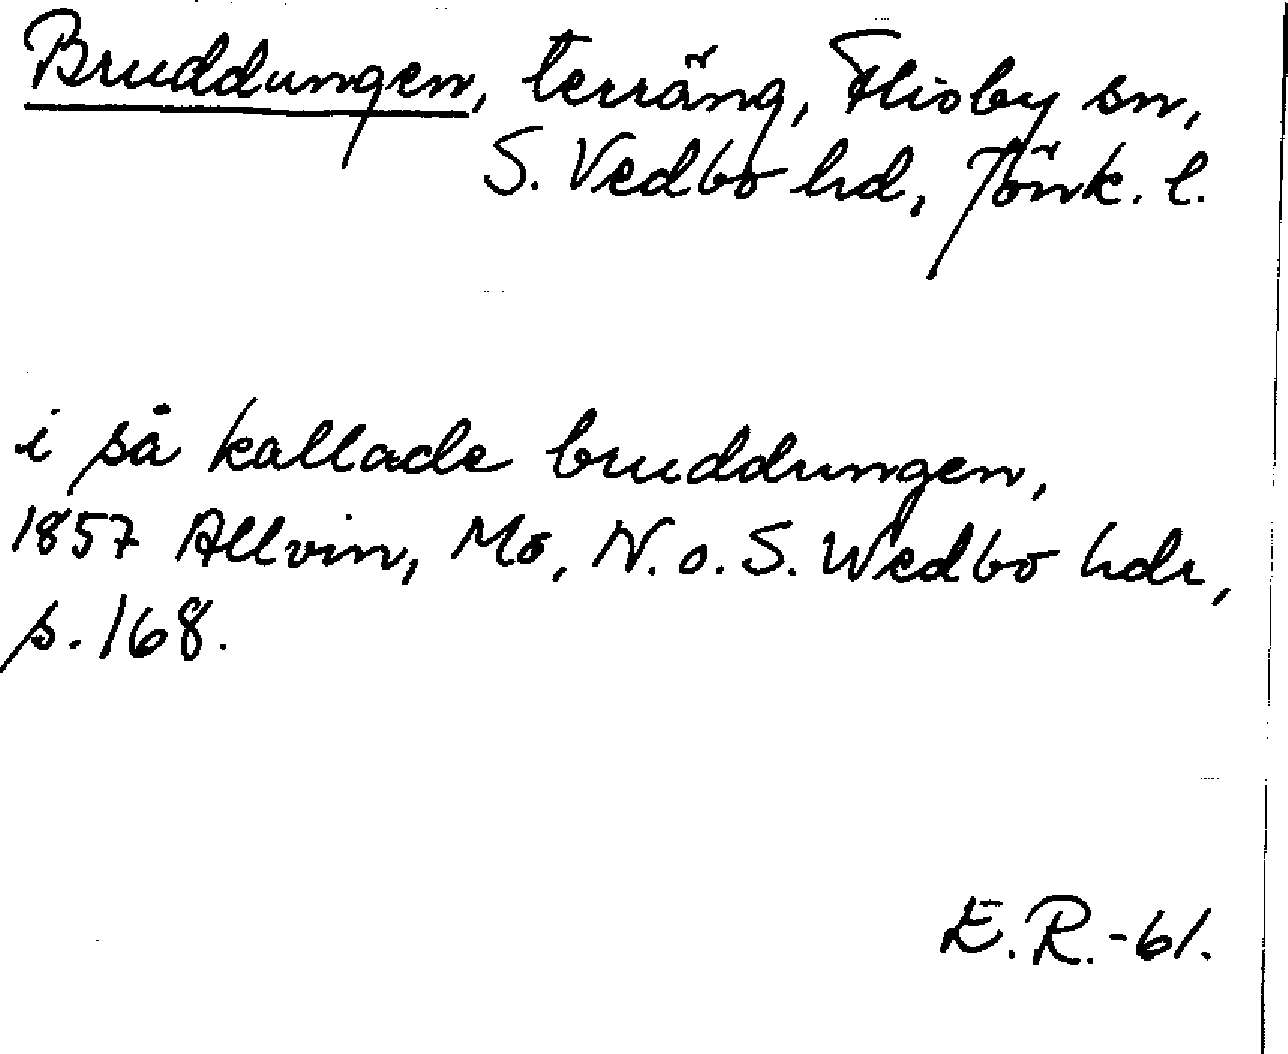 Bruddungen, terräng, Flisby sn,
S. Vedbo hd, Jönk. l.
i så kallade bruddungen,
1857 Allvin, Mo, N. o. S. Wedbo hdr,
s. 168.
E.R.-61.